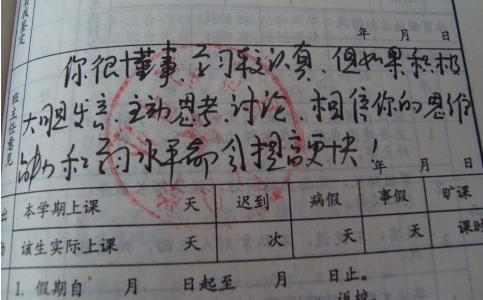 年 月 日
你很懂事,学习较认真,但如果积极
大胆发言、主动思考、讨论,相信你的思维
能力和学习水平都会提高更快!
班主任意见
年 月 日
本学期上课 天 迟到 病假 事假 旷课
该生实际上课 天 次 天 天 课时
1. 假期自 月 日起至 月 日止。
返校